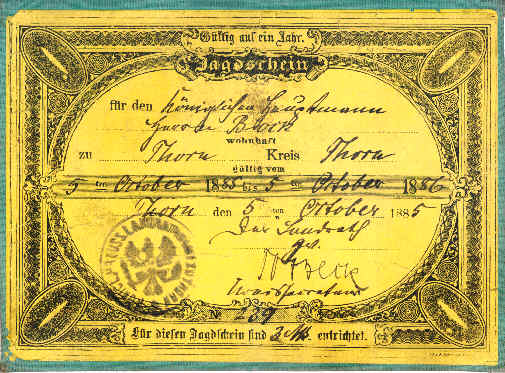 Gültig auf ein Jahr.
Jagdschein
für den Königlichen Hauptmann
Herrn Block
wohnhaft
zu Thorn Kreis Thorn
gültig vom
5 ten October 1885 bis 5 ten October 1886
Thorn den 5 ten October 1885
Der Landrath
Kreissecretair
No 289
Für diesen Jagdschein sind 3 Mk. entrichtet.